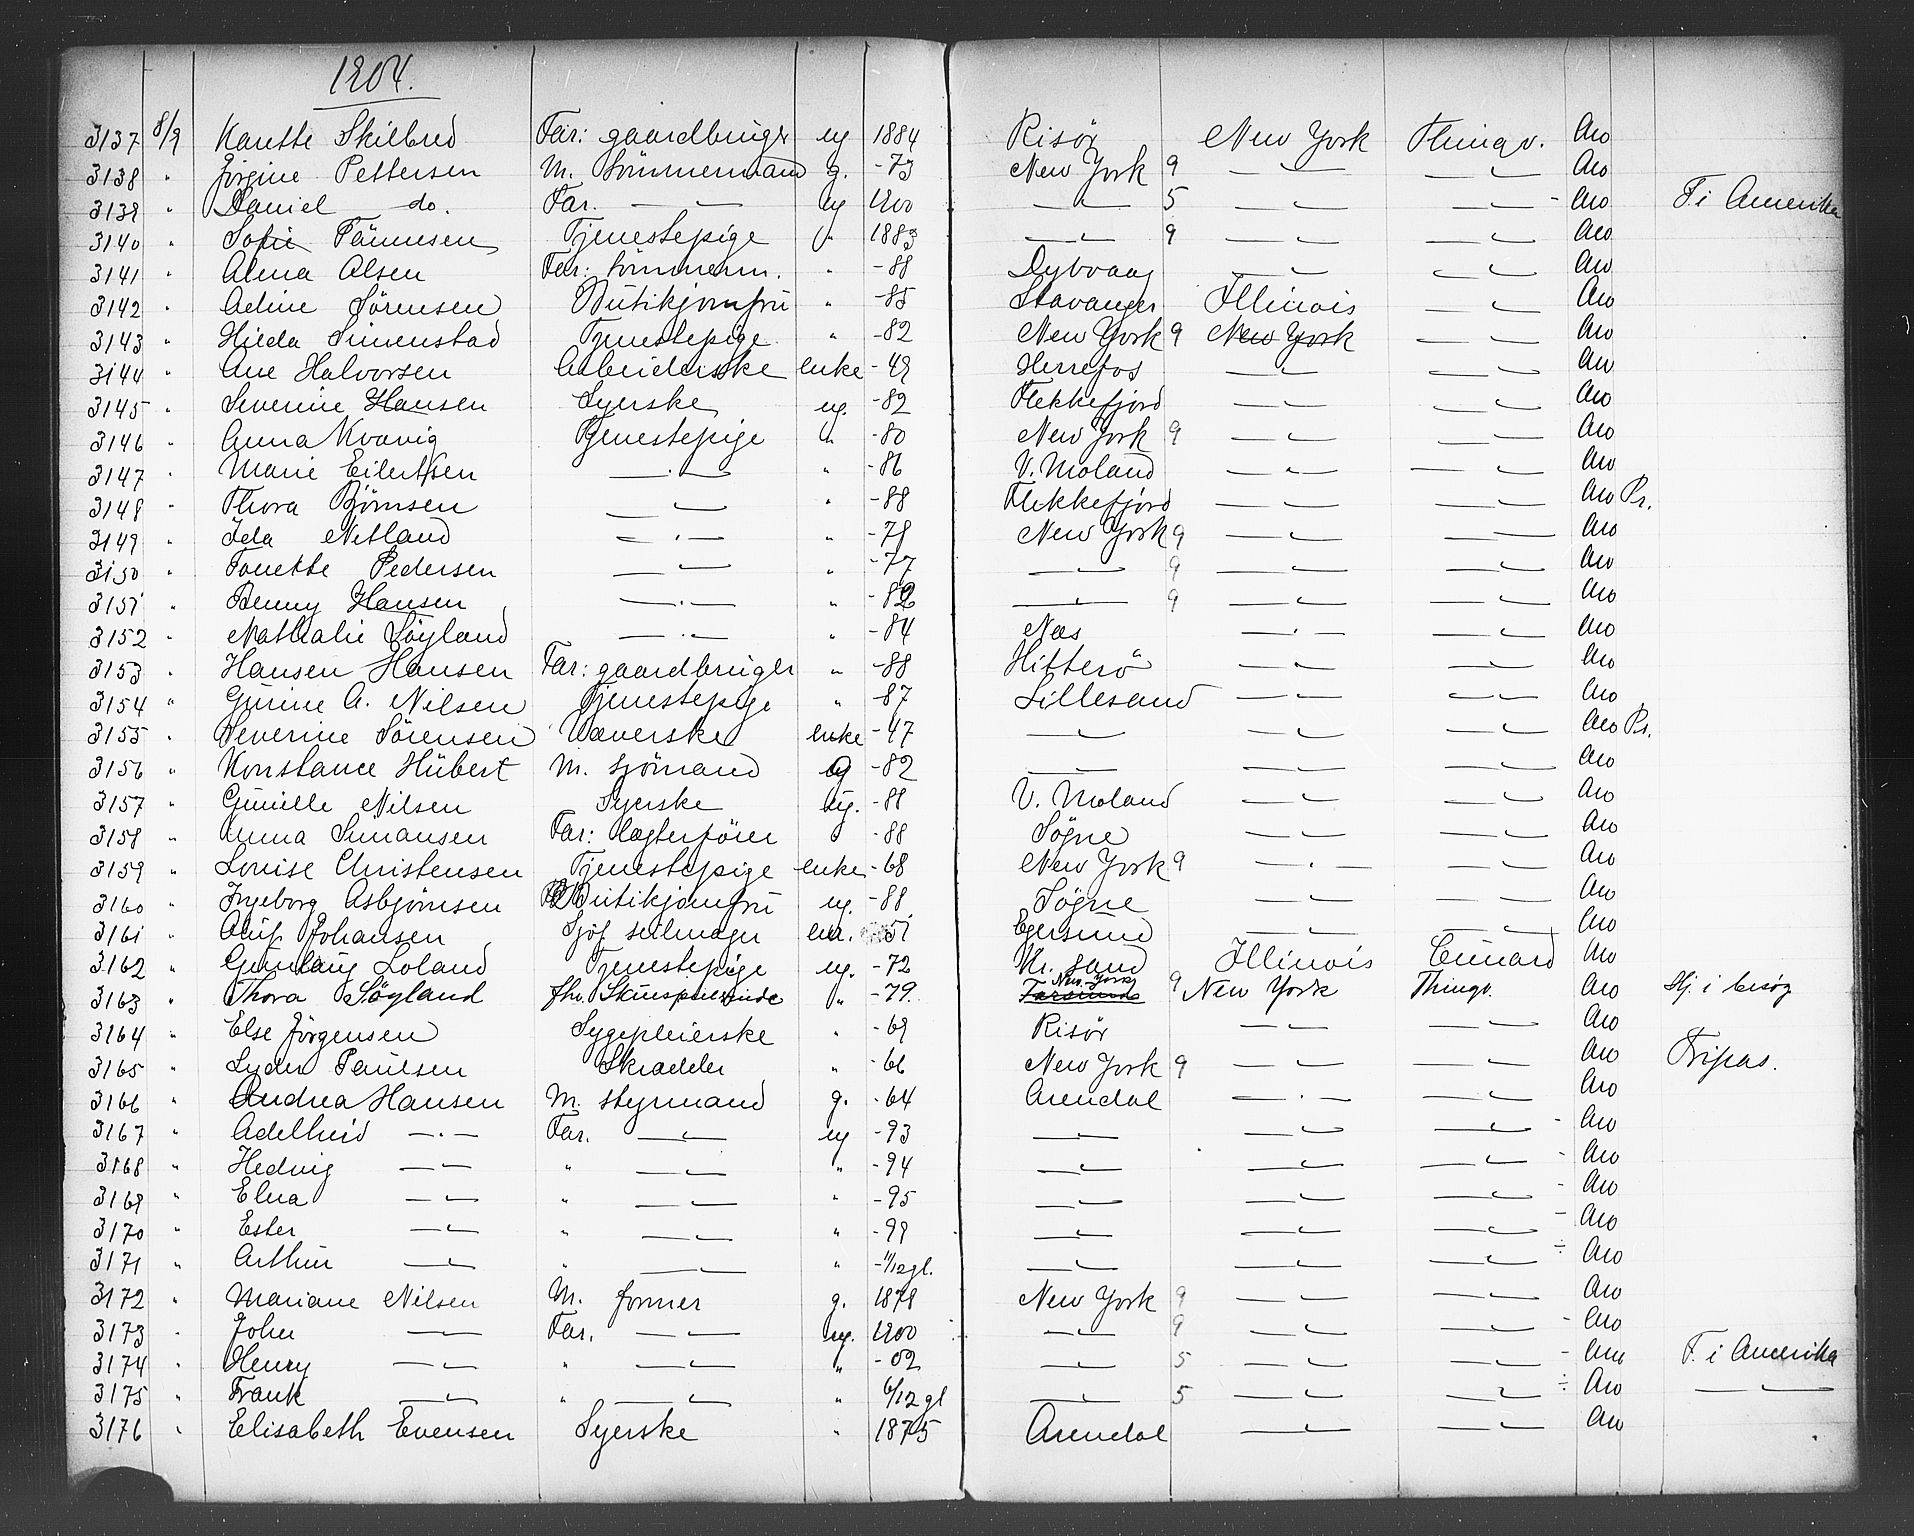 1904.
3137 8/9 Kanutte Skilbred Far: gaardbruger ug 1884 Risör New York Thingv. Aro
3138 " Jörgine Pettersen M. tömmermand g. -73 New York 9 — " — — " — Aro
3139 " Daniel do. Far. — " — ug 1900 — " — 5 — " — — " — - Aro F. i Amerika
3140 " Sofie Tönnesen Tjenestepige " 1883 — " — 9 — " — — " — Aro
3141 " Alma Olsen Far: tömmerm. " -88 Dybvaag — " — — " — Aro
3142 " Adine Sörensen Butikjomfru " -85 Stavanger Illinois — " — Aro
3143 " Hilda Simenstad Tjenestepige " -82 New York 9 New York — " — Aro
3144 " Ane Halvorsen Arbeiderske enke -49 Herrefos — " — — " — Aro
3145 " Severine Hansen Syerske ug. -82 Flekkefjord — " — — " — Aro
3146 " Anna Kvavig Tjenestepige " -80 New York 9 — " — — " — Aro
3147 " Marie Eilertsen — " — " -86 V. Moland — " — — " — Aro
3148 " Thora Björnsen — " — " -88 Flekkefjord — " — — " — Aro Pr.
3149 " Ida Netland — " — " -79 New York 9 — " — — " — Aro
3150 " Tonette Pedersen — " — " -77 — " — 9 — " — — " — Aro
3151 " Benny Hansen — " — " -82 — " — 9 — " — — " — Aro
3152 " Nathalie Söyland — " — " -84 Næs — " — — " — Aro
3153 " Hansen Hansen Far: gaardbruger " -88 Hitterö — " — — " — Aro
3154 " Gurine A. Nilsen Tjenestepige " -87 Lillesand — " — — " — Aro
3155 " Severine Sörensen Væverske enke -47 — " — — " — — " — Aro Pr.
3156 " Konstance Hübert M. sjömand g -82 — " — — " — — " — Aro
3157 " Gunille Nilsen Syerske ug. -88 V. Moland — " — — " — Aro
3158 " Anna Simonsen Far: lægterförer " -88 Sögne — " — — " — Aro
3159 " Lovise Christensen Tjenestepige enke -68 New York 9 — " — — " — Aro
3160 " Ingeborg Asbjörnsen Butikjomfru ug. -88 Sögne — " — — " — Aro
3161 " Oluf Johansen Sjöf seilmager enk. 51 Egersund — " — — " — Aro
3162 " Gunlaug Loland Tjenestepige ug. -72 Kr. sand Illinois Cunard Aro
3163 " Thora Söyland fhv. Skuespillerinde " -79 New York 9 New York Thingv. Aro Hj. i besög
3164 " Else Jörgensen Sygepleierske " -69 Risör — " — — " — Aro
3165 " Lyder Paulsen Skrædder " -66 New York 9 — " — — " — Aro Fripas.
3166 " Andrea Hansen M. styrmand g. -64 Arendal — " — — " — Aro
3167 " Adelheid — " — Far. — " — ug -93 — " — — " — — " — - Aro
3168 " Hedvig — " — " — " — " -94 — " — — " — — " — - Aro
3169 " Elna — " — " — " — " -95 — " — — " — — " — - Aro
3170 " Ester — " — " — " — " -99 — " — — " — — " — - Aro
3171 " Arthur — " — " — " — " -11/12 gl. — " — — " — — " — ÷ Aro
3172 " Mariane Nilsen M. former g. 1878 New York 9 — " — — " — Aro
3173 " John — " — Far. — " — ug. 1900 — " — 9 — " — — " — - Aro
3174 " Henry — " — " — " — " -02 — " — 5 — " — — " — - Aro F. i Amerika
3175 " Frank — " — " — " — " 6/12 gl — " — 5 — " — — " — ÷ Aro — " —
3176 " Elisabeth Evensen Syerske " 1875 Arendal — " — — " — Aro